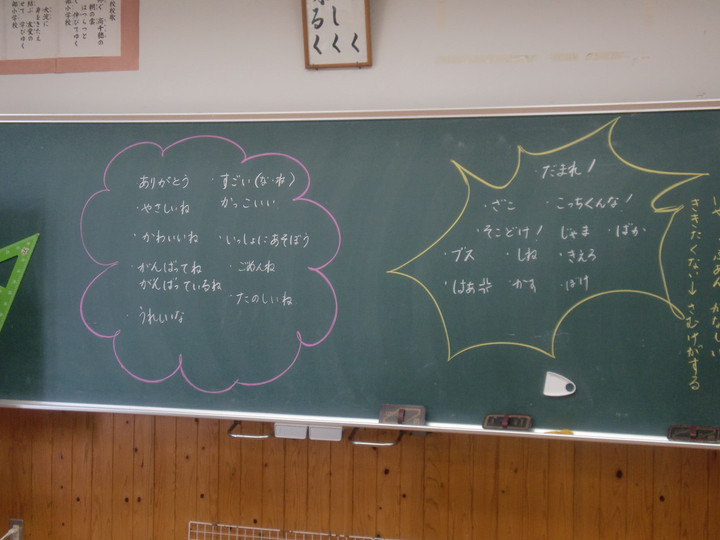 ありがとう
・やさしいね
・かわいいね
・がんばってね
がんばっているね
・うれしいな
・すごい(な・ね)
かっこいい
・いっしょにあそぼう
・ごめんね
・たのしいね
・だまれ!
・ざこ
・こっちくんな!
・そこどけ!
・じゃま
・ばか
・ブス
・しね
・きえろ
・はあ
・かす
・ぼけ
かなしい
ききたくない→さむけがする